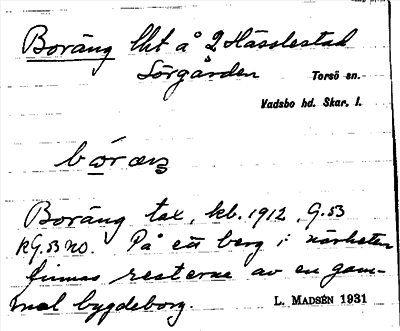 Boräng lht å 2 Hässlestad
Sörgården Torsö sn.
Vadsbo hd. Skar. l.
Boräng tax, kb. 1912, G.53
kG.53 no. På ett berg i närheten
finnas resterna av en gam-
mal bygdeborg. L. MADSÉN 1931